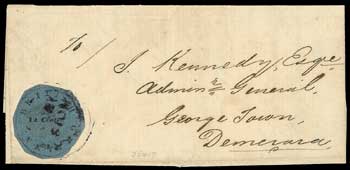 To /
J. Kennedy, Esqr
Adminr General,
George Town,
Demerara.